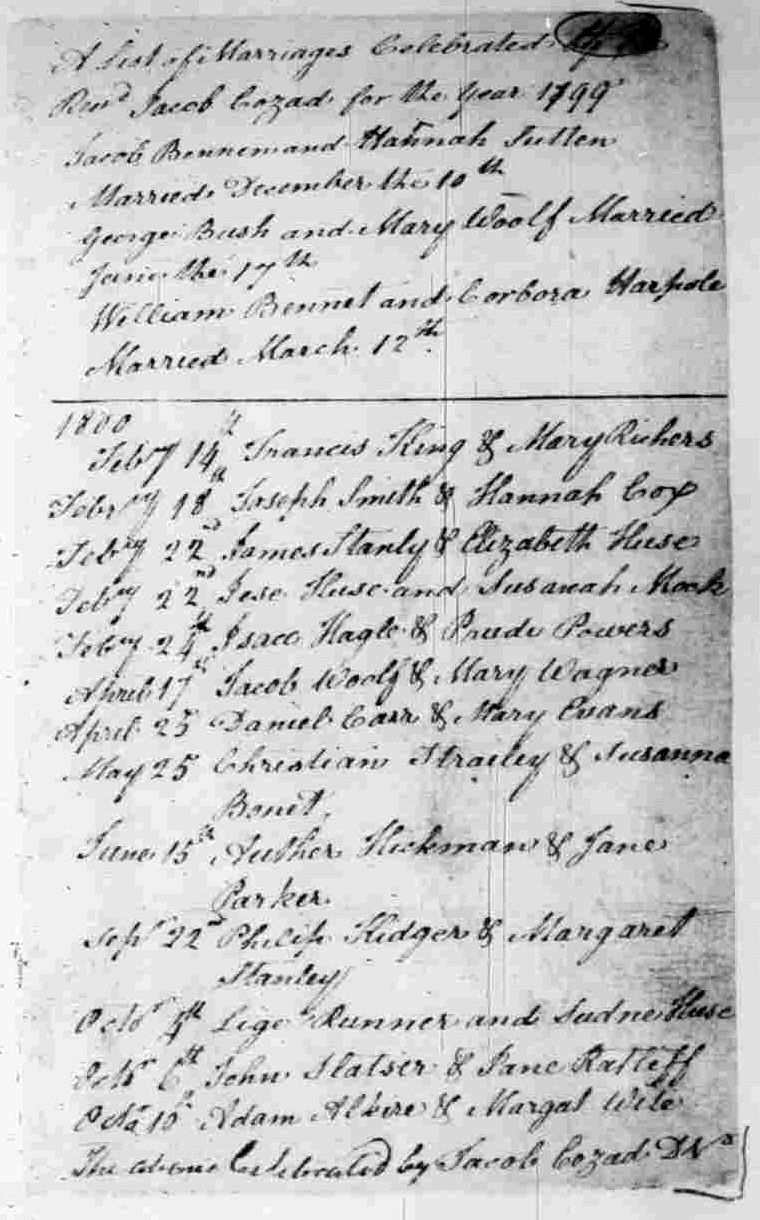 A List of Marriages Celebrated by
Revd Jacob Cozad for the Year 1799
Jacob Bennem and Hannah Sutten
Married December the 10th
George Bush and Mary Woolf Married
June the 17th
William Bennet and Corbora Harpole
Married March 12th
1800
Feby 14th Francis King & Mary Richers
Febry 18th Joseph Smith & Hannah Cox
Feby 22nd James Stanly & Elizabeth Huse
Feby 22nd Jese Huse and Susanah Mook
Feby 24th Isaac Hagle & Prude Powers
April 17th Jacob Woolf & Mary Wagner
April 25 Daniel Carr & Mary Evans
May 25 Christian Strailey & Susanna
Bonet
June 15th Auther Hickman & Jane
Parker
Sepr 22nd Philip Kidger & Margaret
Stanley
Octor 4th Lige Runner and Sudne Huse
Octr 6th John Slatser & Jane Ratliff
Octr 10th Adam Alkire & Margat Wile
The above Celebrated by Jacob Cozad